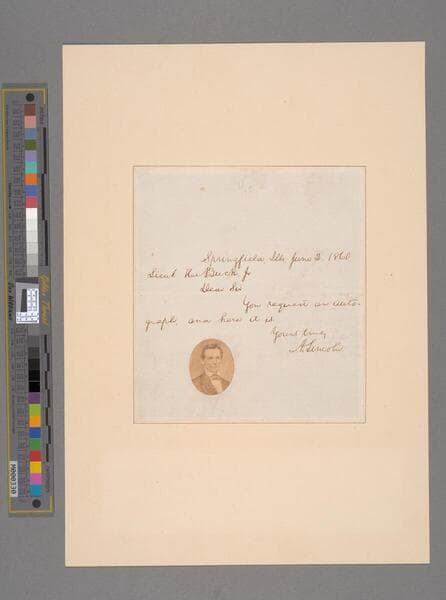 Springfield Ills June 2. 1860
Buck Jr
Dear Sir
You request an auto-
graph, and here it is
Yours truly
A. Lincoln